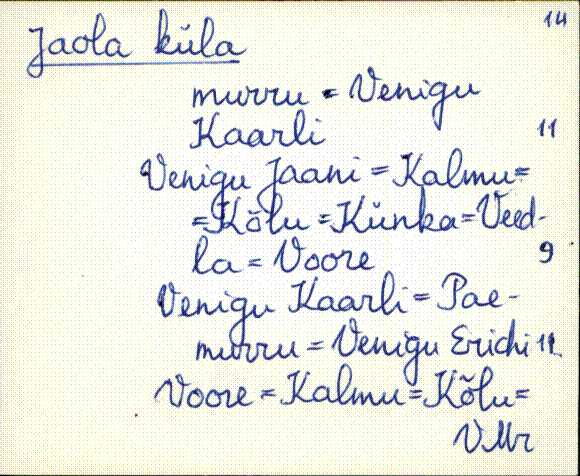 14
Jaola küla
murru = Venigu
Kaarli 11
Venigu Jaani = Kalmu =
= Kõlu = Künka = Veed-
la = Voore 9
Venigu Kaarli = Pae-
murru = Venigu Erichi 11
Voore = Kalmu = Kõlu =
VMr